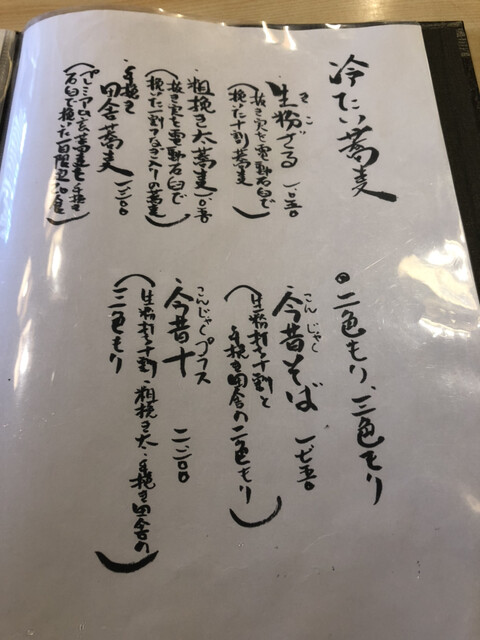 冷たい蕎麦
きこ
・生粉ざる 一〇五〇
(抜き実を電動石臼で
挽いた十割蕎麦)
・粗挽き太蕎麦 一〇五〇
(抜き実を電動石臼で
挽いた二割つなぎ入りの蕎麦)
・手挽き
田舎蕎麦
(プレミアム玄蕎麦を手挽き
石臼で挽いた一日限定10食)
二色もり、三色もり
こんじゃく
・今昔そば 一七五〇
(生粉打ち十割と
手挽き田舎の二色もり)
こんじゃくプラス
・今昔十 二二〇〇
(生粉打ち十割・粗挽き太・手挽き田舎の
三色もり)